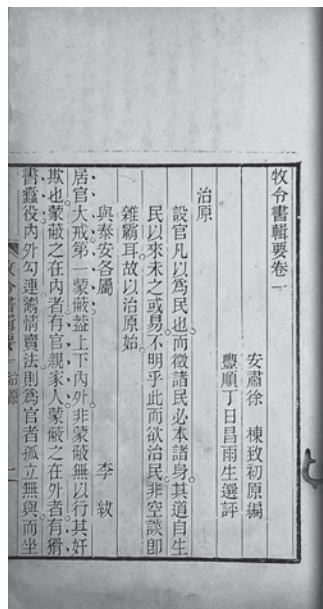 牧令書輯要卷一
安肅徐　棟致初原編
豐順丁日昌雨生選評
治原
設官凡以爲民也而徵諸民必本諸身其道自生
民以來未之或易不明乎此而欲治民非空談卽
雜霸耳故以治原始
與泰安各屬　李　紱
居官大戒第一蒙蔽蓋上下內外非蒙蔽無以行其奸
欺也蒙蔽之在內者有官親家人蒙蔽之在外者有猾
書蠹役內外勾連鬻情賣法則爲官者孤立無與而坐
牧令書輯要　治原　一